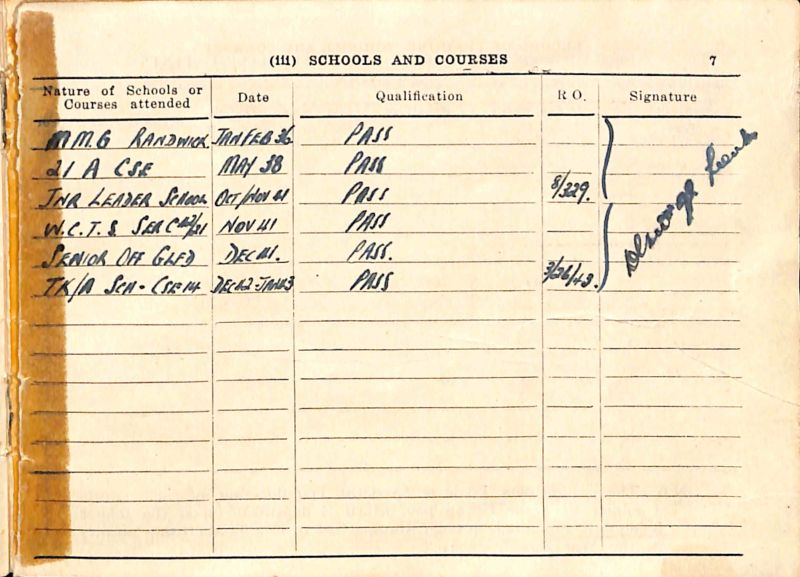 (iii) SCHOOLS AND COURSES 7
Nature of Schools or Courses attended Date Qualification R O. Signature
MMG RANDWICK JAN FEB 36 PASS
21 A CSE MAY 38 PASS
JNR LEADER SCHOOL OCT/NOV 41 PASS 8/329.
W.C.T.S SER C NOV 41 PASS
SENIOR OFF GLFD DEC 41. PASS.
TK/A SCH - CSE 14 DEC 42 - JAN 43 PASS 3/26/43.